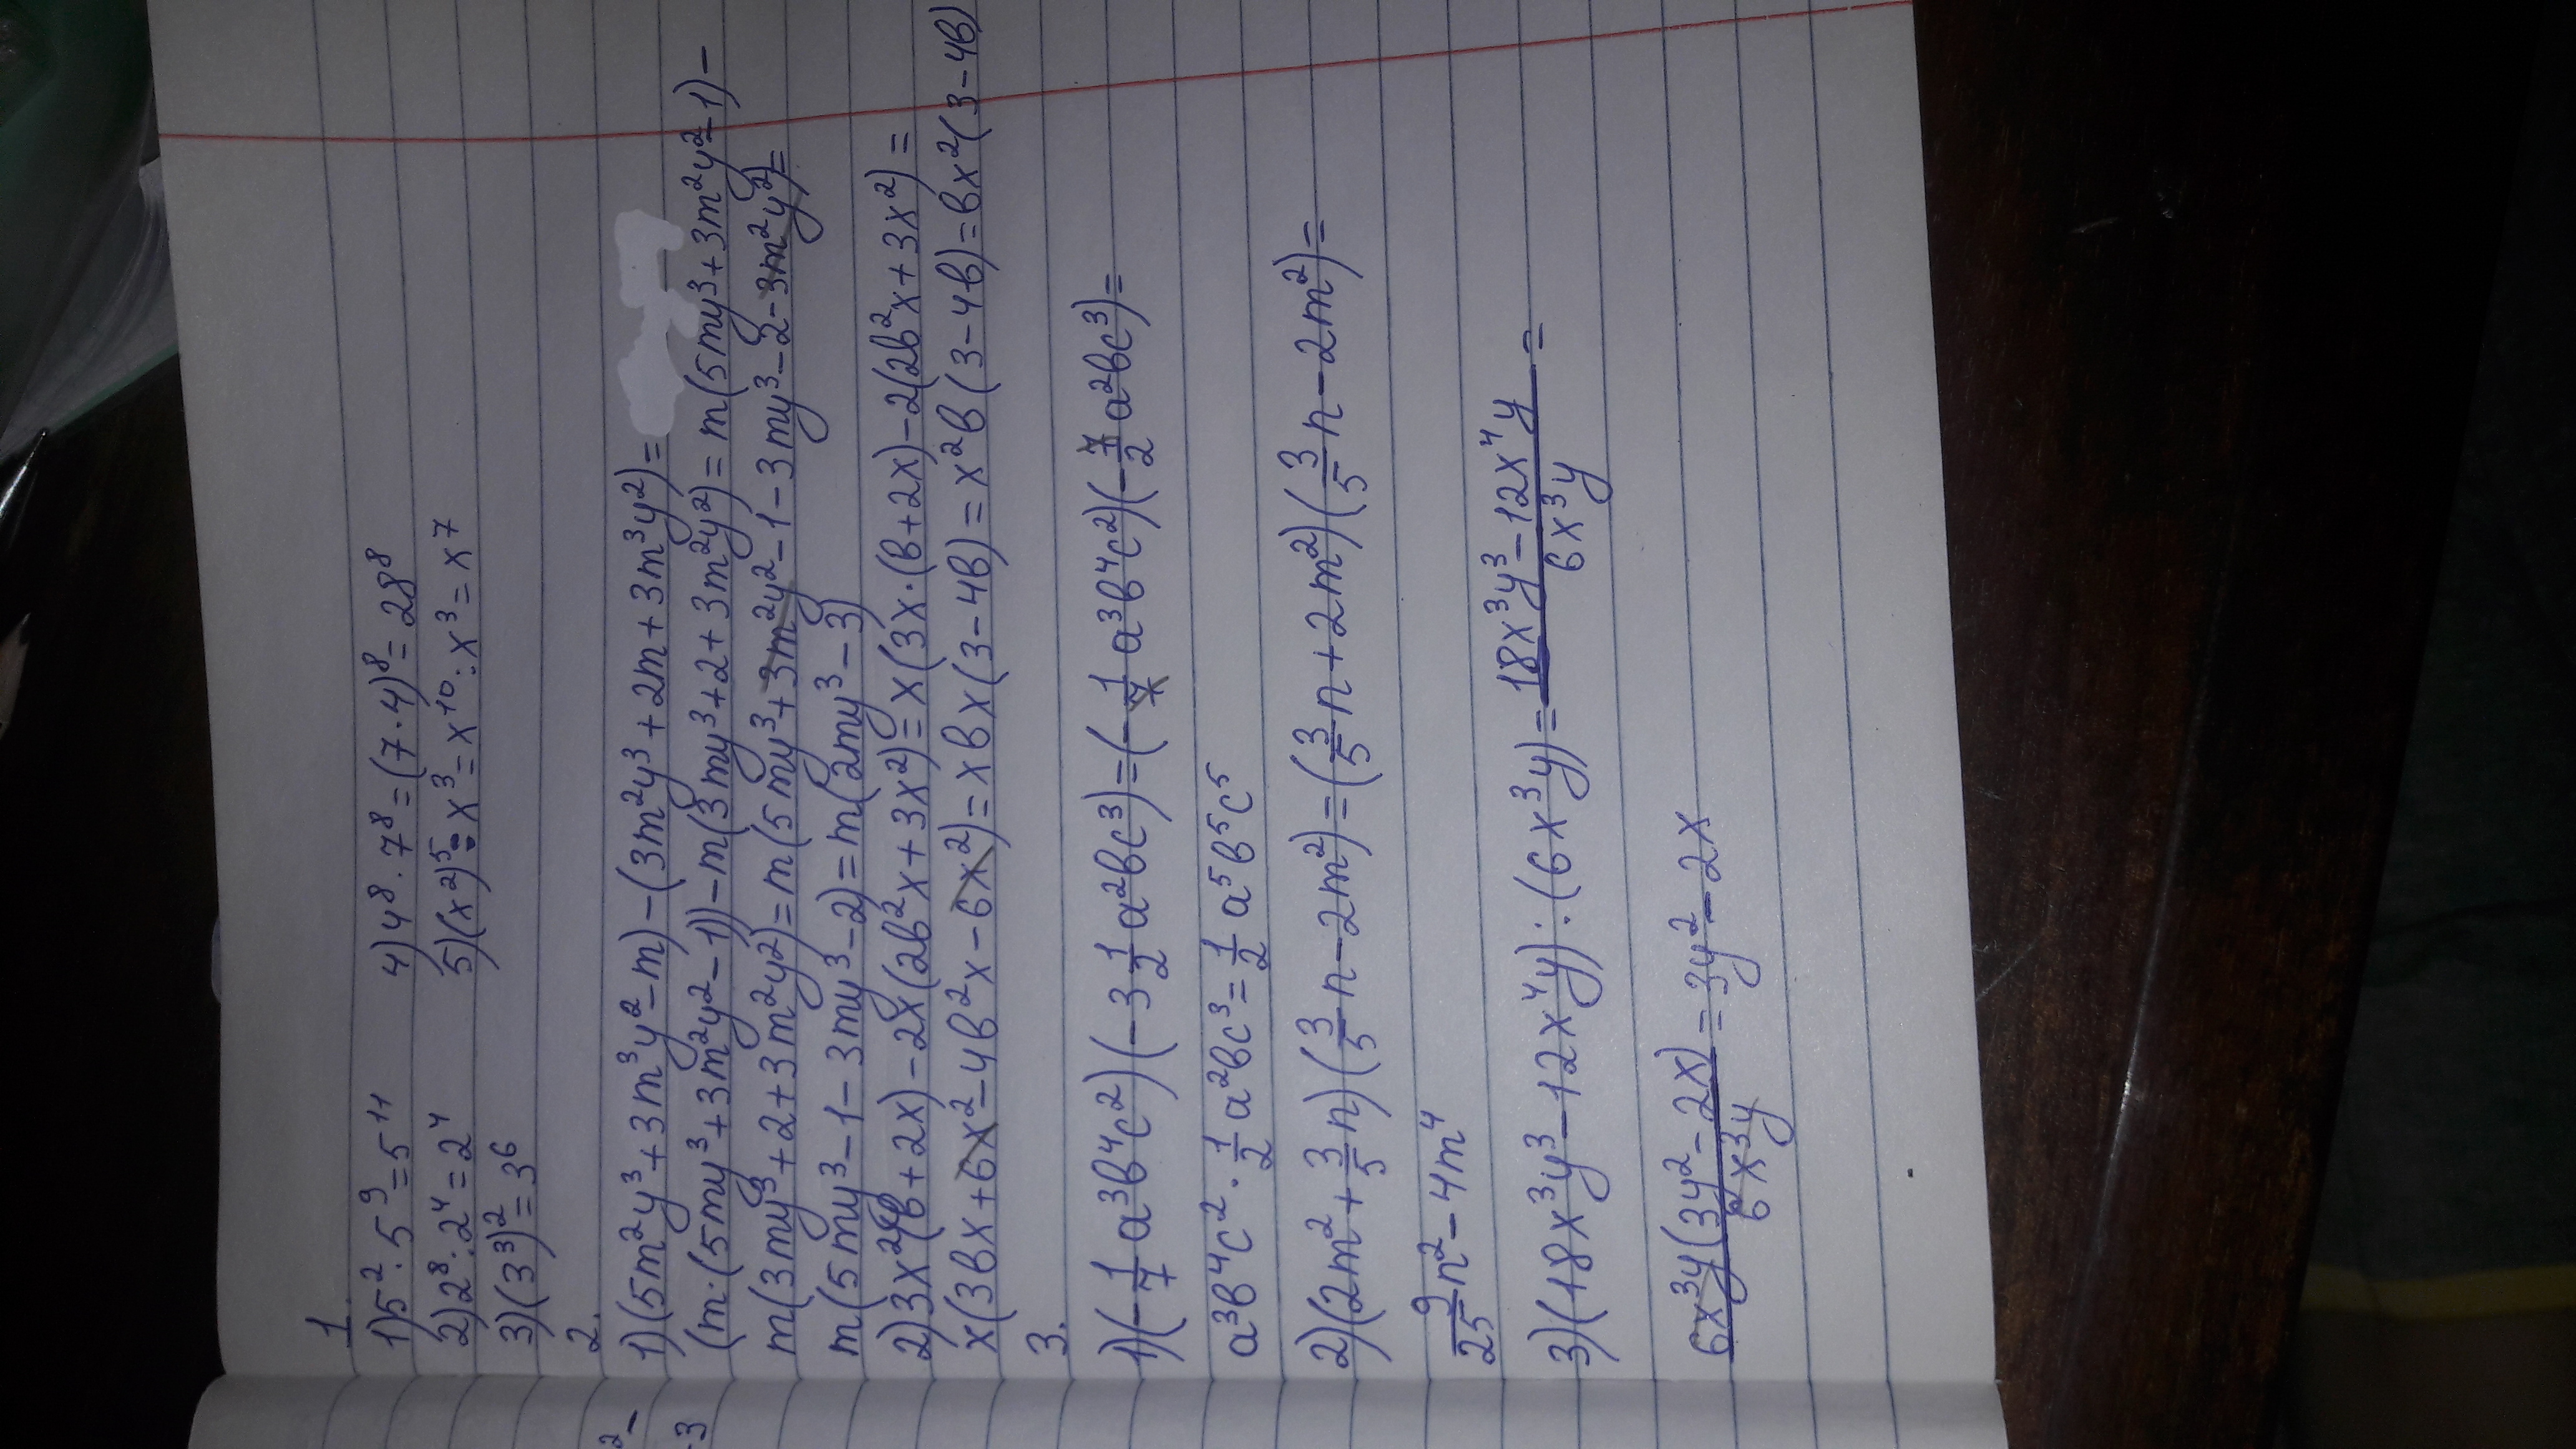 1.
1) 5² · 5⁹ = 5¹¹ 4) 4⁸ · 7⁸ = (7 · 4)⁸ = 28⁸
2) 2⁸ : 2⁴ = 2⁴ 5) (x²)⁵ : x³ = x¹⁰ : x³ = x⁷
3) (3³)² = 3⁶
2.
1) (5m²y³ + 3m³y² - m) - (3m²y³ + 2m + 3m³y²) =
(m · (5my³ + 3m²y² - 1)) - m(3my³ + 2 + 3m²y²) = m(5my³ + 3m²y² - 1) -
m(3my³ + 2 + 3m²y²) = m(5my³ + 3m²y² - 1 - 3my³ - 2 - 3m²y²) =
m(5my³ - 1 - 3my³ - 2) = m(2my³ - 3)
2) 3x²(в + 2x) - 2x(2в²x + 3x²) = x(3x · (в + 2x) - 2(2в²x + 3x²) =
x(3вx + 6x² - 4в²x - 6x²) = xвx(3 - 4в) = x²в(3 - 4в) = вx²(3 - 4в)
3.
1) (-1/7 a³в⁴c²)(-3 1/2 a²вc³) = (-1/7 a³в⁴c²)(-7/2 a²вc³) =
a³в⁴c² · 1/2 a²вc³ = 1/2 a⁵в⁵c⁵
2) (2m² + 3/5 n)(3/5 n - 2m²) = (3/5 n + 2m²)(3/5 n - 2m²) =
9/25 n² - 4m⁴
3) (18x³y³ - 12x⁴y) : (6x³y) = 18x³y³ - 12x⁴y / 6x³y =
6x³y(3y² - 2x) / 6x³y = 3y² - 2x